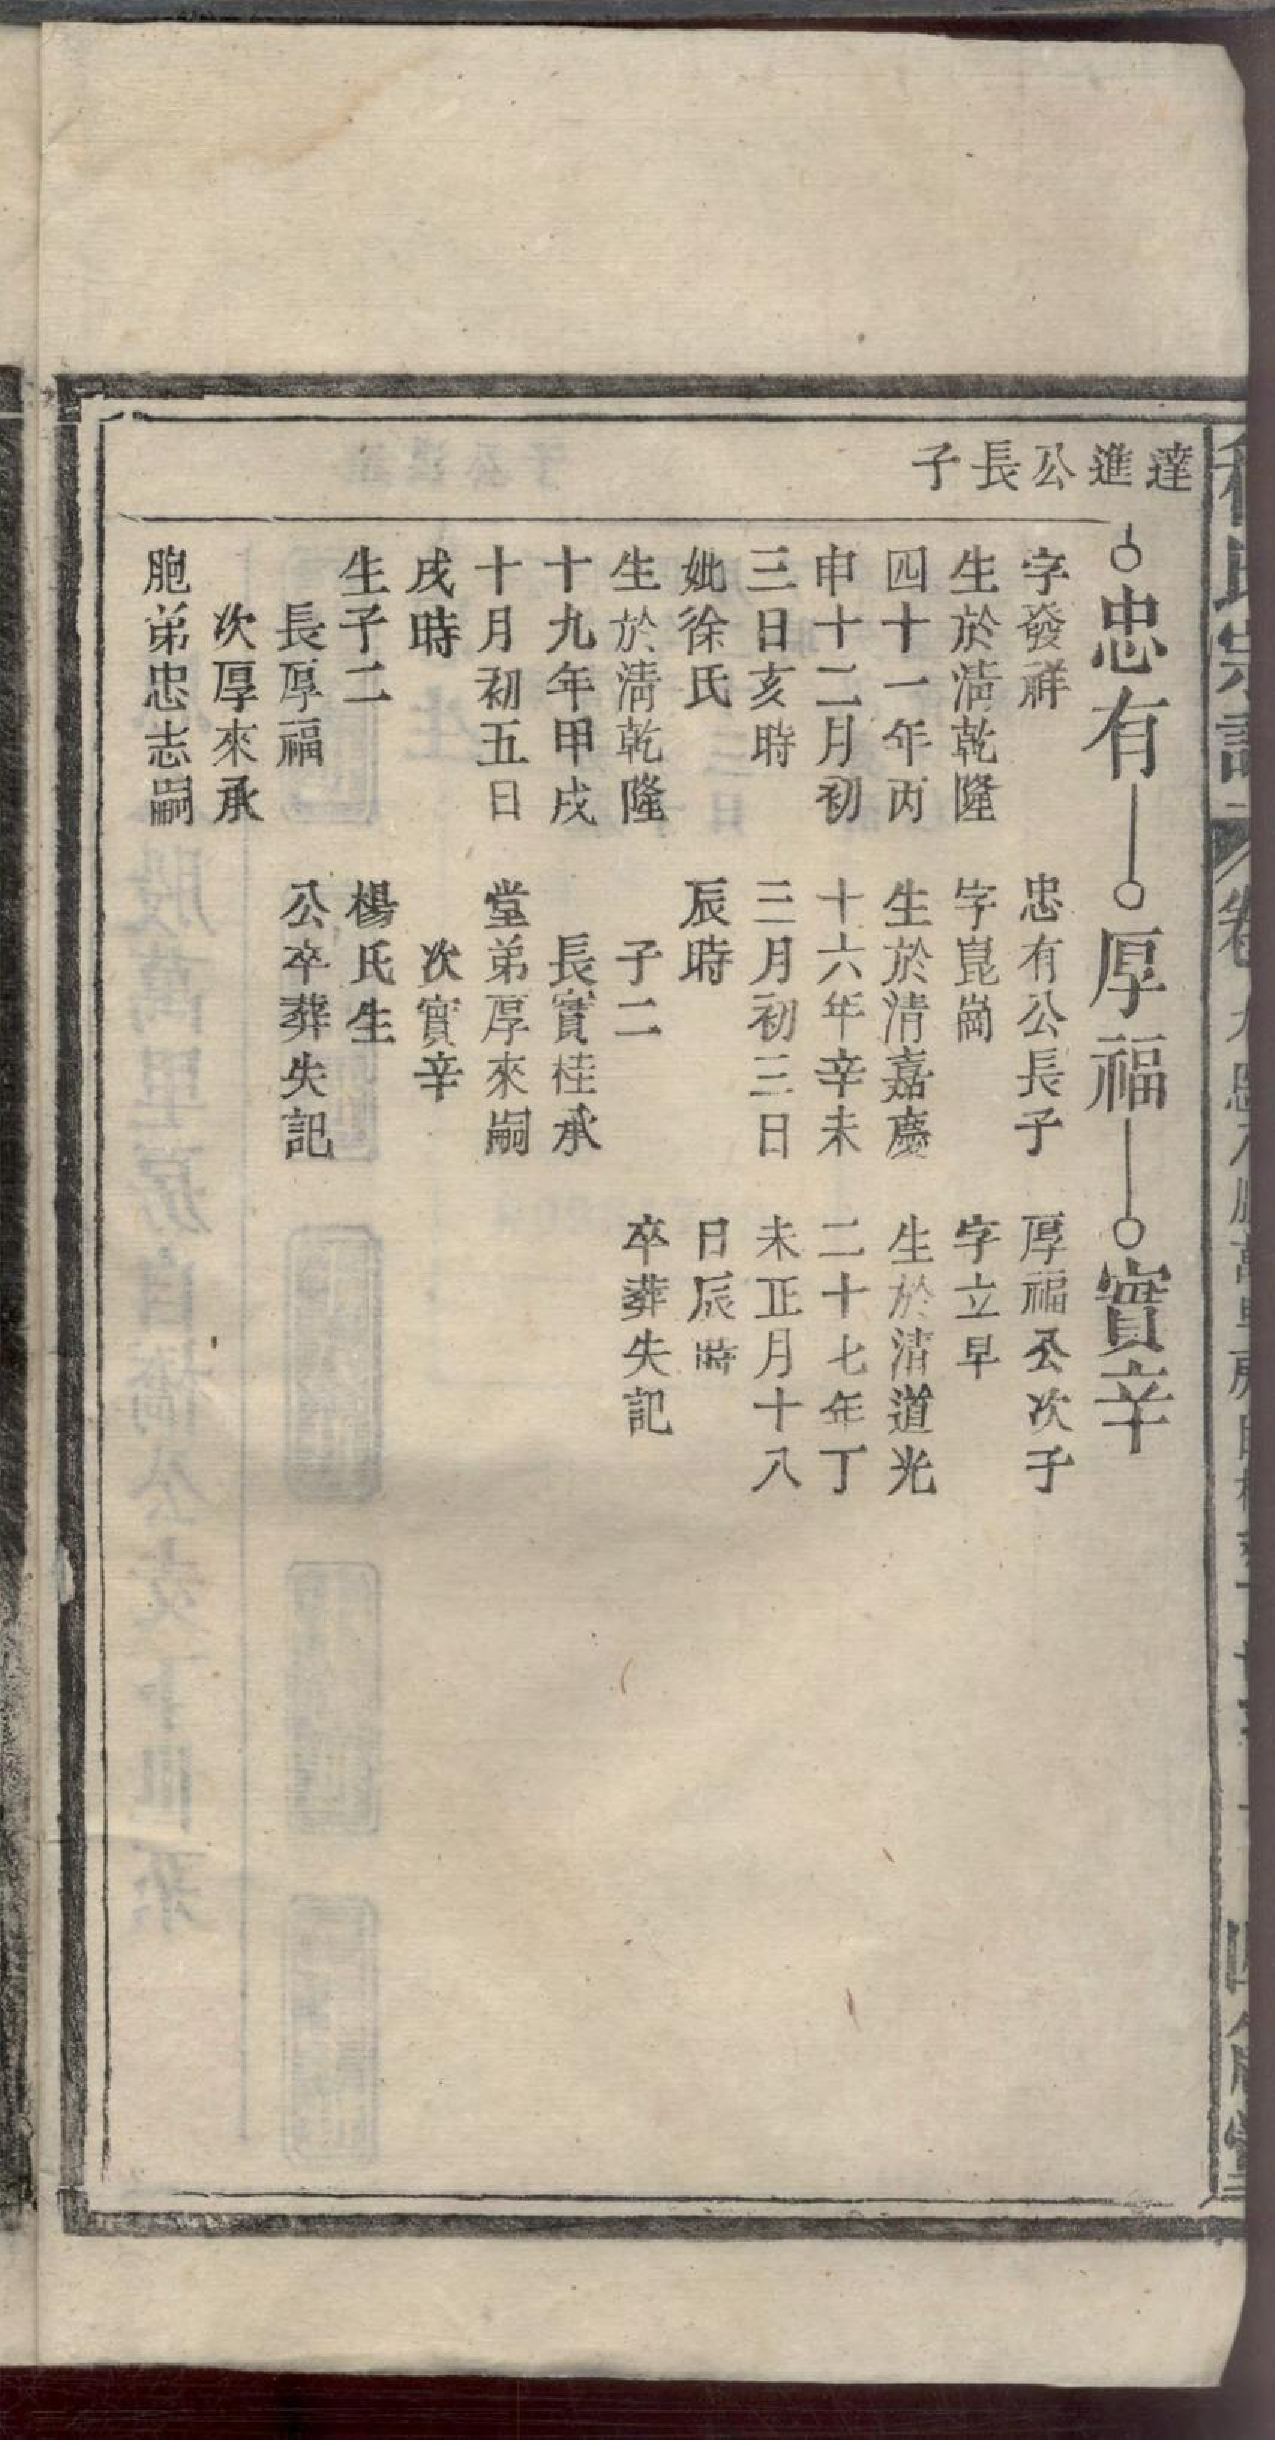 達進公長子
忠有
字發祥
生於淸乾隆
四十一年丙
申十二月初
三日亥時
妣徐氏
生於淸乾隆
十九年甲戌
十月初五日
戌時
生子二
長厚福
次厚來承
胞弟忠志嗣
厚福
忠有公長子
字崑崗
生於清嘉慶
十六年辛未
三月初三日
辰時
子二
長實桂承
堂弟厚來嗣
次實辛
楊氏生
公卒葬失記
實辛
厚福公次子
字立早
生於清道光
二十七年丁
未正月十八
日辰時
卒葬失記